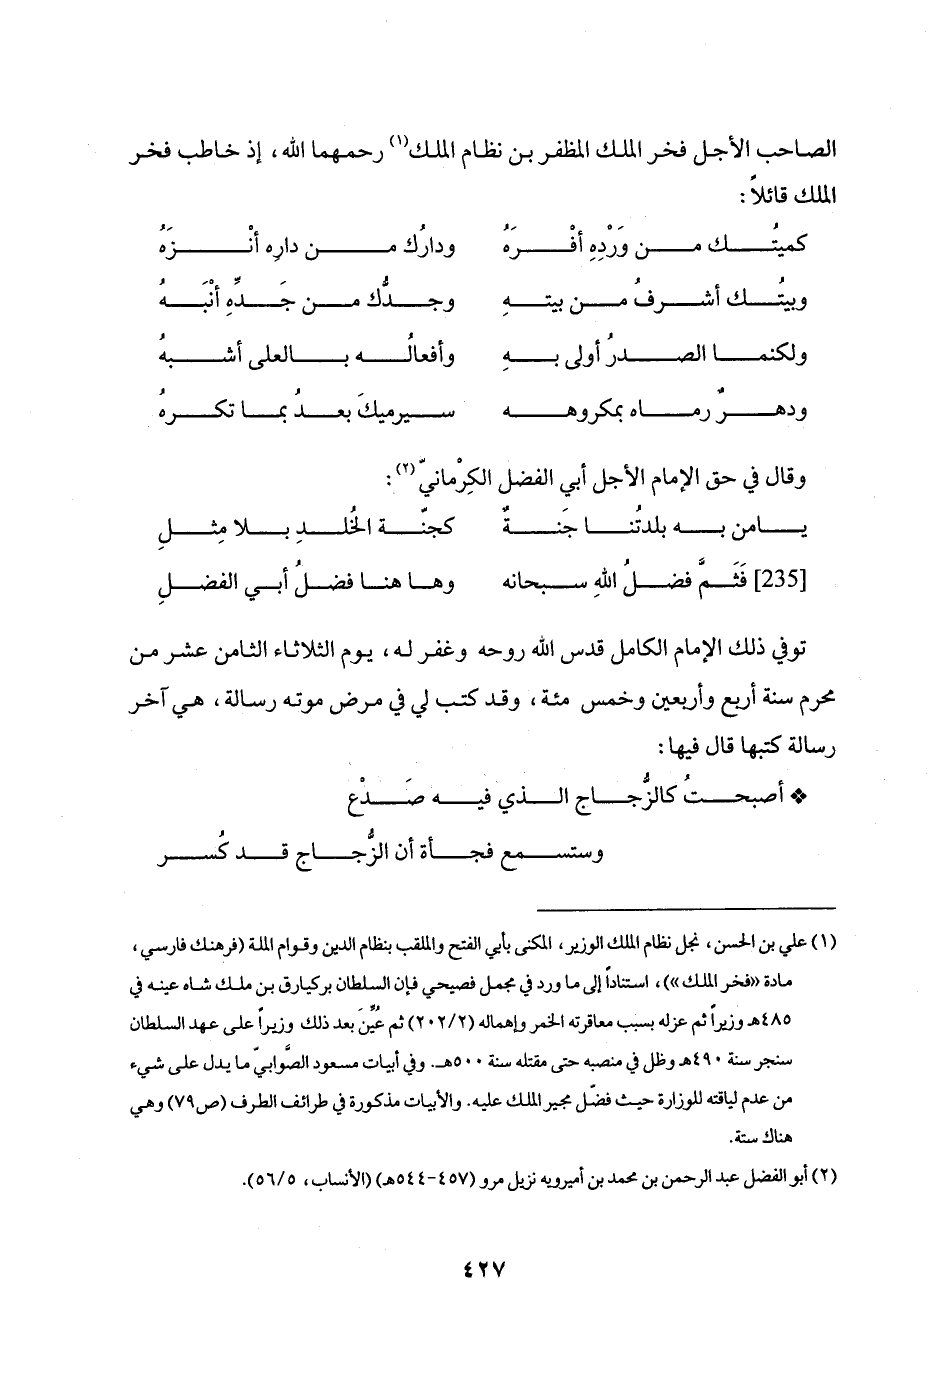 الصاحب الأجل فخر الملك المظفر بن نظام الملك(١) رحمهما الله، إذ خاطب فخر
الملك قائلاً:
كميتُك من وَرْدِهِ أفْرَهُ ودارُك من دارِه أنْزَهُ
وبيتُك أشرفُ من بيتهِ وجدُّك من جَدِّهِ أنْبَهُ
ولكنما الصدرُ أولى بهِ وأفعالُه بالعلى أشبهُ
ودهرٌ رماه بمكروهه سيرميكَ بعدُ بما تكرهُ
وقال في حق الإمام الأجل أبي الفضل الكِرْمانيّ(٢):
يامن به بلدتُنا جَنةٌ كجنّة الخُلدِ بلا مِثلِ
[235] فَثَمَّ فضلُ اللهِ سبحانه وها هنا فضلُ أبي الفضلِ
توفي ذلك الإمام الكامل قدس الله روحه وغفر له، يوم الثلاثاء الثامن عشر من
محرم سنة أربع وأربعين وخمس مئة، وقد كتب لي في مرض موته رسالة، هي آخر
رسالة كتبها قال فيها:
❖ أصبحتُ كالزُّجاج الذي فيه صَدْع
وستسمع فجأة أن الزُّجاج قد كُسر
(١) علي بن الحسن، نجل نظام الملك الوزير، المكنى بأبي الفتح والملقب بنظام الدين وقوام الملة (فرهنك فارسي،
مادة «فخر الملك»)، استناداً إلى ما ورد في مجمل فصيحي فإن السلطان بركيارق بن ملك شاه عينه في
٤٨٥هـ وزيراً ثم عزله بسبب معاقرته الخمر وإهماله (٢٠٢/٢) ثم عُيِّنَ بعد ذلك وزيراً على عهد السلطان
سنجر سنة ٤٩٠هـ وظل في منصبه حتى مقتله سنة ٥٠٠هـ. وفي أبيات مسعود الصَّوابيّ ما يدل على شيء
من عدم لياقته للوزارة حيث فضّل مجير الملك عليه. والأبيات مذكورة في طرائف الطرف (ص٧٩) وهي
هناك ستة.
(٢) أبو الفضل عبد الرحمن بن محمد بن أميرويه نزيل مرو (٤٥٧-٥٤٤هـ) (الأنساب، ٥٦/٥).
٤٢٧